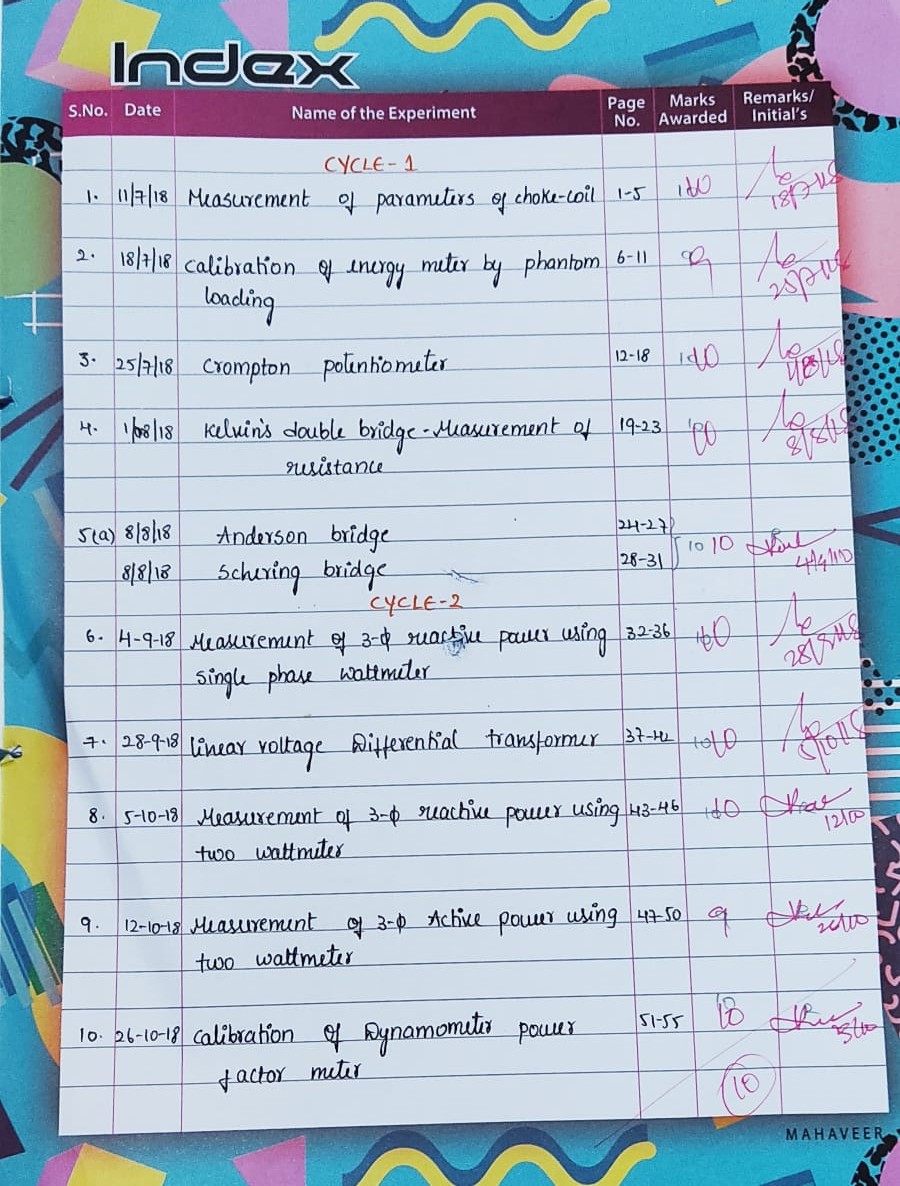 Index
S.No. Date Name of the Experiment Page No. Marks Awarded Remarks/ Initial's
CYCLE-1
1. 11/7/18 Measurement of parameters of choke-coil 1-5 10
18/7/18
2. 18/7/18 Calibration of energy meter by phantom 6-11 9
loading
25/7/18
3. 25/7/18 Crompton potentiometer 12-18 10
4. 1/08/18 Kelvin's double bridge-Measurement of 19-23 10
resistance
8/8/18
5(a) 8/8/18 Anderson bridge 24-27
8/8/18 Schering bridge 28-31 10 10
CYCLE-2
6. 4-9-18 Measurement of 3-ϕ reactive power using 32-36 10
single phase wattmeter
28/9/18
7. 28-9-18 linear voltage Differential transformer 37-42 10
5/10/18
8. 5-10-18 Measurement of 3-ϕ reactive power using 43-46 10
two wattmeter
9. 12-10-18 Measurement of 3-ϕ Active power using 47-50 9
two wattmeter
10. 26-10-18 Calibration of Dynamometer power 51-55 10
factor meter
10
MAHAVEER